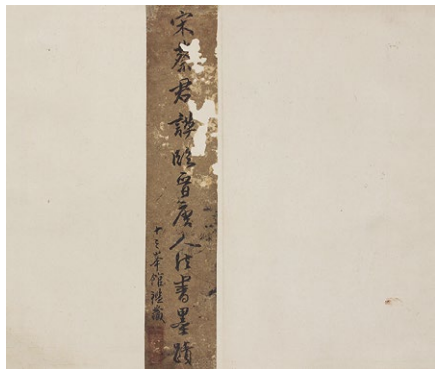 宋蔡君謨臨晉唐人法書墨蹟
十三華館襍藏